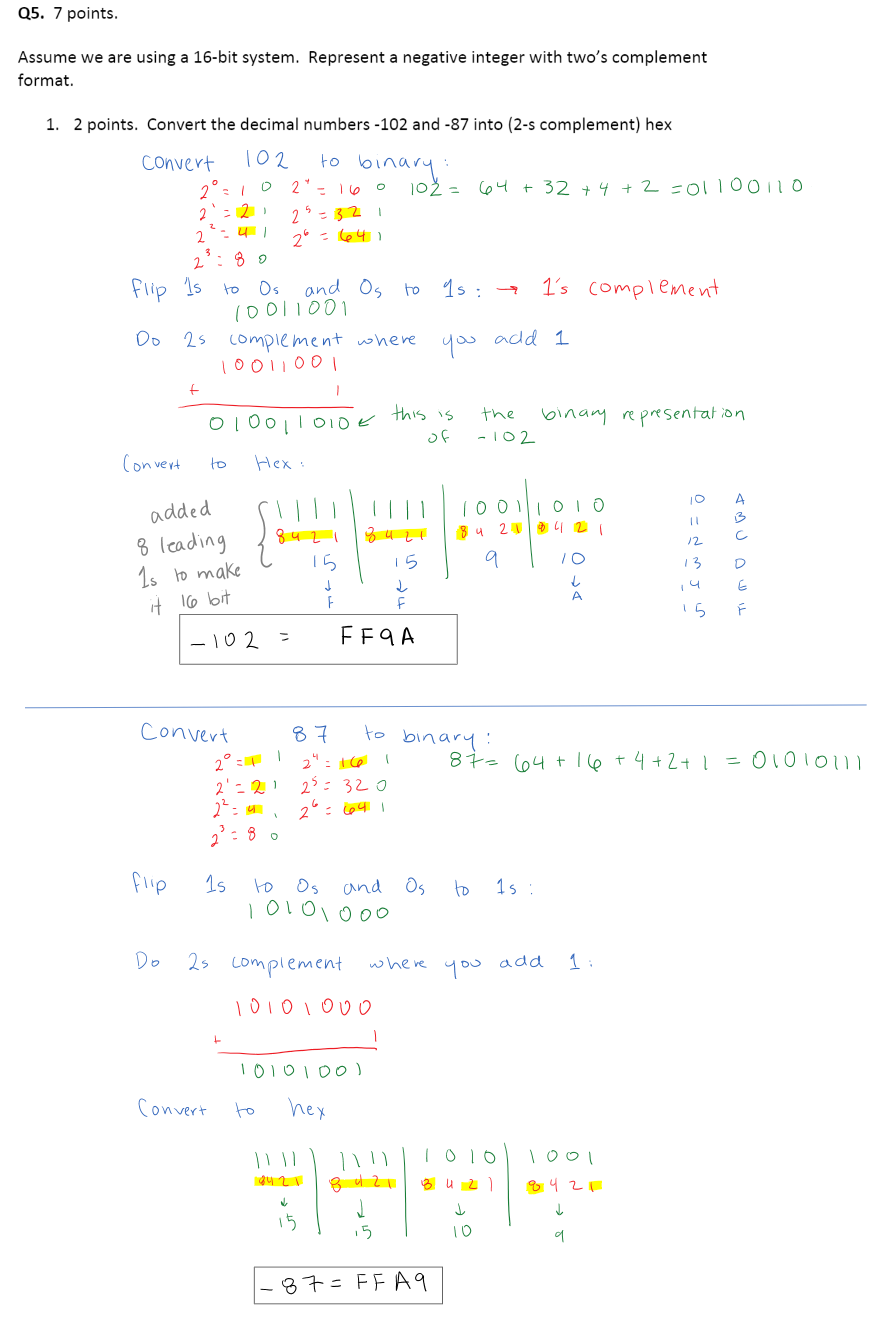 Q5. 7 points.
Assume we are using a 16-bit system. Represent a negative integer with two's complement
format.
1. 2 points. Convert the decimal numbers -102 and -87 into (2-s complement) hex
Convert 102 to binary:
2⁰ = 1 0 2⁴ = 16 0 102 = 64 + 32 + 4 + 2 = 01100110
2¹ = 2 1 2⁵ = 32 1
2² = 4 1 2⁶ = 64 1
2³ = 8 0
Flip 1s to 0s and 0s to 1s: → 1's complement
10011001
Do 2s complement where you add 1
10011001
+ 1
010011010 ← this is the binary representation
of -102
Convert to Hex:
added
8 leading
1s to make
it 16 bit
1111 | 1111 | 1001 | 1010
8421 8421 8421 8421
15 15 9 10
↓ ↓ ↓
F F A
10 A
11 B
12 C
13 D
14 E
15 F
-102 = FF9A
Convert 87 to binary:
2⁰ = 1 1 2⁴ = 16 1 87 = 64 + 16 + 4 + 2 + 1 = 01010111
2¹ = 2 1 2⁵ = 32 0
2² = 4 1 2⁶ = 64 1
2³ = 8 0
Flip 1s to 0s and 0s to 1s:
10101000
Do 2s complement where you add 1:
10101000
+ 1
10101001
Convert to hex
1111 | 1111 | 1010 | 1001
8421 8421 8421 8421
↓ ↓ ↓ ↓
15 15 10 9
-87 = FFA9